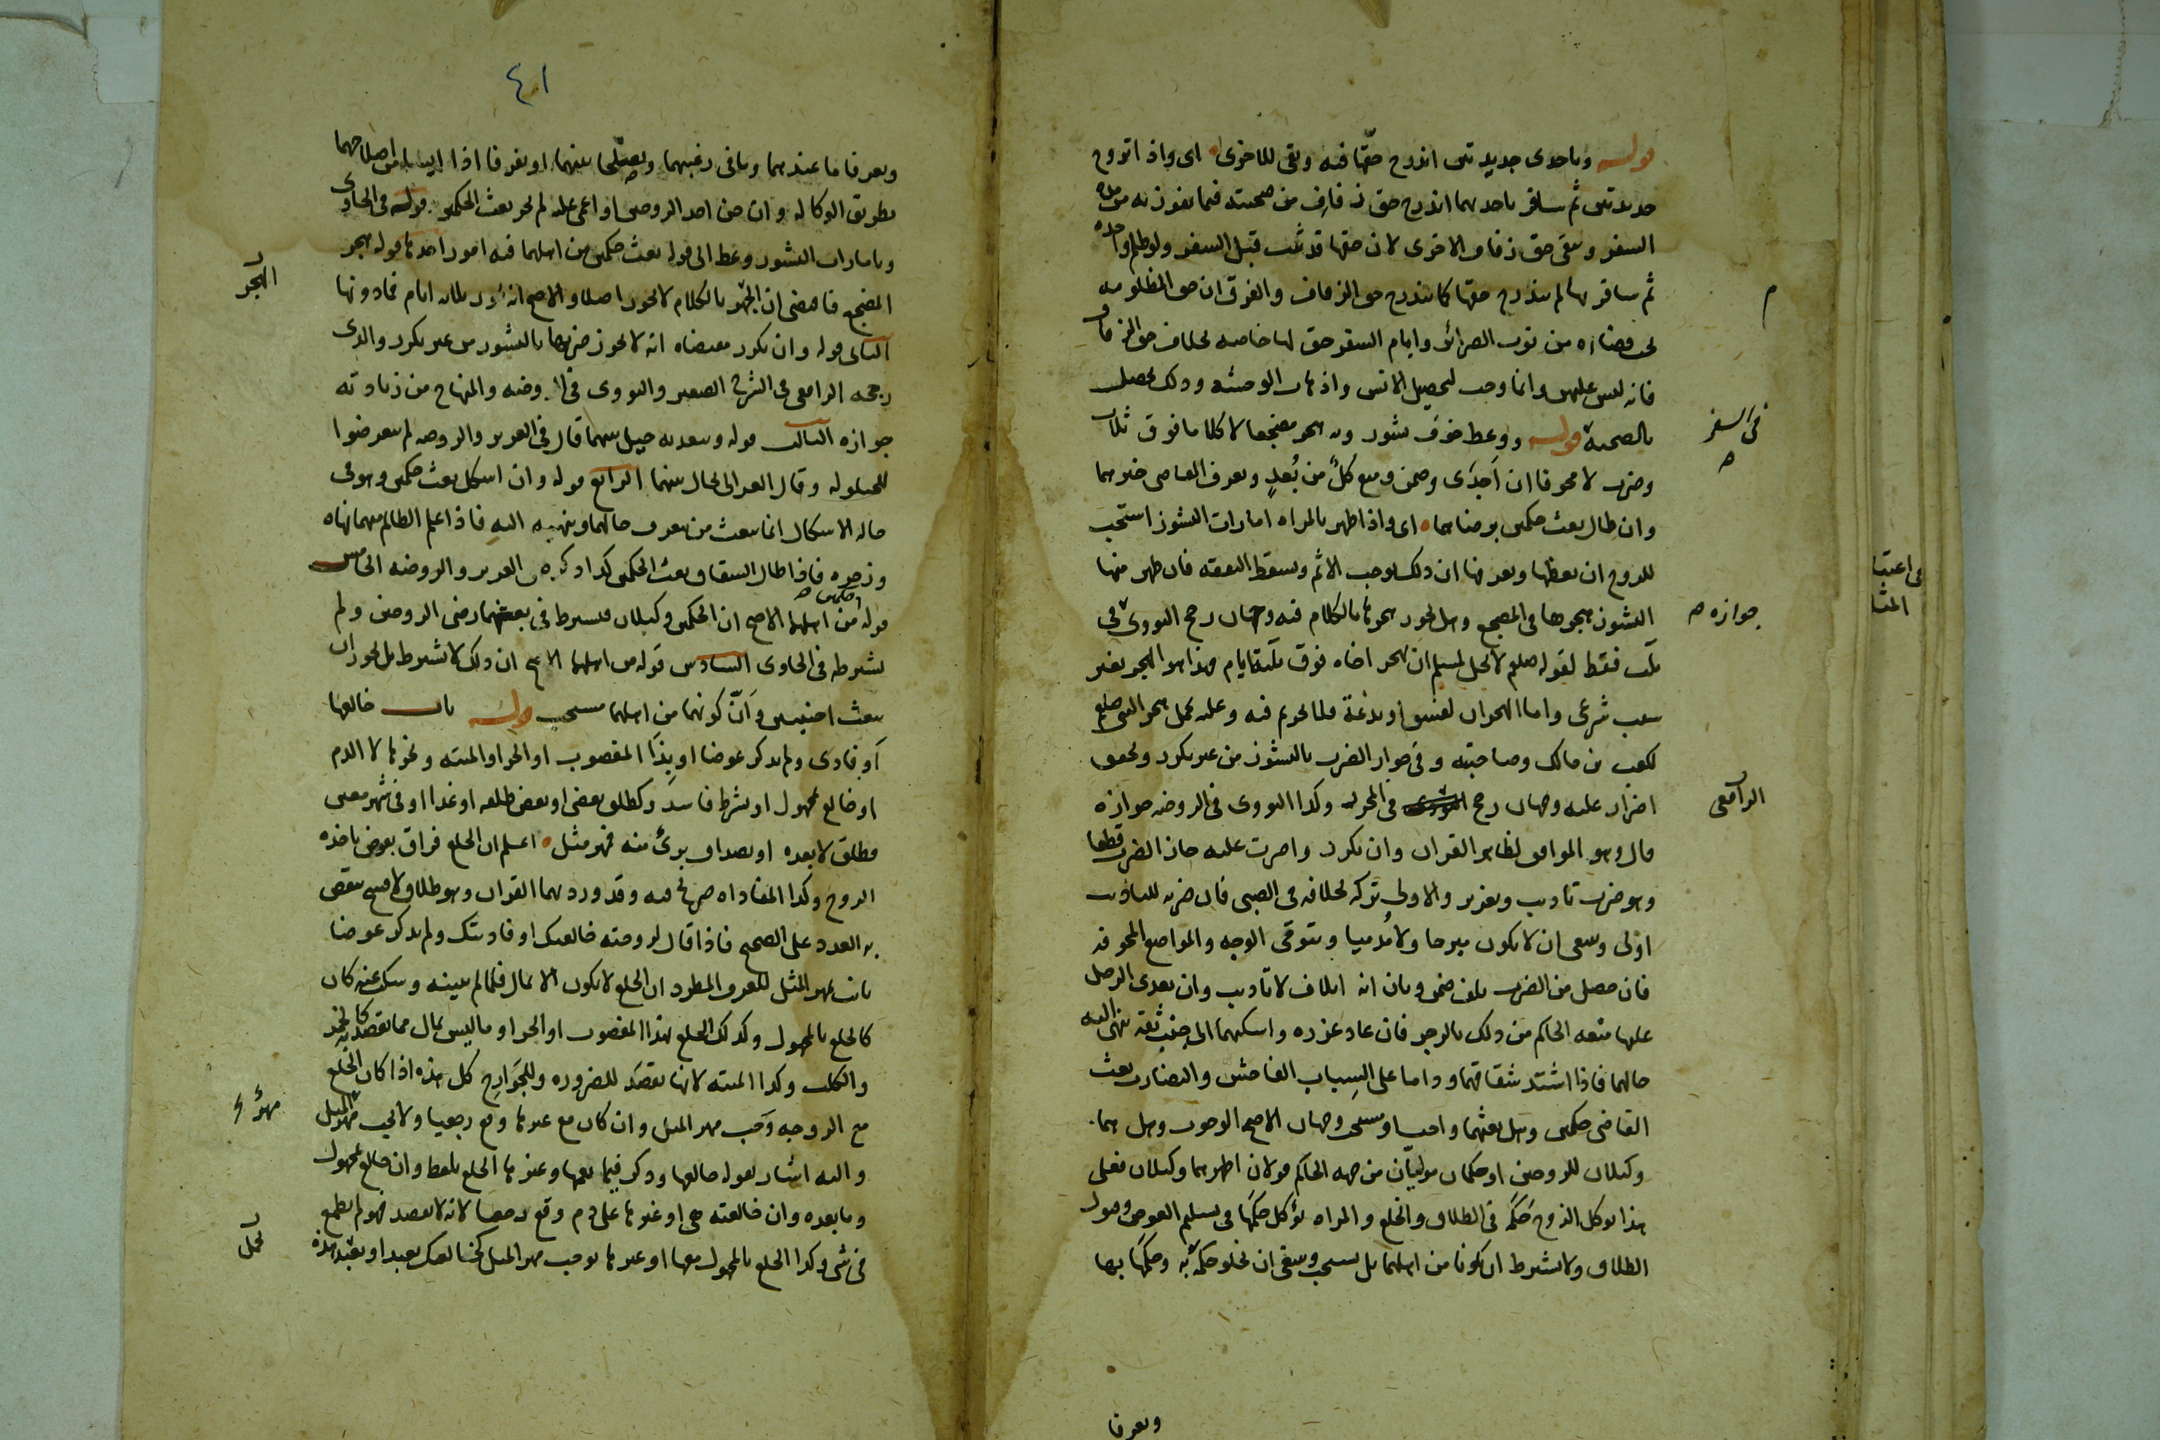 قوله وباحدى جديدتين اندرج حقها فيه وبقى للاخرى اى واذا تزوج
جديدتين ثم سافر باحديهما اندرج حق زفافها فى صحبته فيما يفوز به من مدة
السفر وبقى حق زفاف الاخرى لان حقها قد ثبت قبل السفر ولو ظلم واحدة
ثم سافر بها لم يندرج حقها كما يندرج حق الزفاف والفرق ان حق المظلومة
يجب قضاؤه من نوب الضرائر وايام السفر حق لها خاصة بخلاف حق الزفاف
فانه ليس عليهن وانما وجب لتحصيل الانس واذهاب الوحشة وذلك يحصل
بالصحبة قوله ووعظ خوف نشوز وبه هجر مضجعا لا كلاما فوق ثلاث
وضرب لا مخوفا ان اجدى وضمن ومنع كل من بعد ويعرف القاضى خبرهما
وان طال بعث حكمين برضاهما اى واذا ظهر بالمراة امارات النشوز استحب
للزوج ان يعظها ويعرفها ان ذلك يوجب الاثم ويسقط النفقة فان ظهر منها
النشوز هجرها فى المضجع وهل يجوز هجرها بالكلام فيه وجهان رجح النووى فى
ثلث فقط لقوله صلعم لا يحل لمسلم ان يهجر اخاه فوق ثلثة ايام هذا هو الهجر بغير
سبب شرعى واما الهجران لفسق او بدعة فلا تحريم فيه وعليه يحمل هجر النبى صلعم
لكعب بن مالك وصاحبيه وفى جواز الضرب بالنشوز من غير تكرر وتحقق
اضرار عليه وجهان رجح فى المحرر وكذا النووى فى الروضة جوازه
قال وهو الموافق لظاهر القران وان تكرر واصرت عليه جاز الضرب قطعا
وهو ضرب تاديب وتعزير والاولى تركه بخلافه فى الصبى فان ضربه للتاديب
اولى وينبغى ان لا يكون مبرحا ولا مدميا ويتوقى الوجه والمواضع المخوفة
فان حصل من الضرب تلف ضمن وبان انه اتلاف لا تاديب وان تعدى الرجل
عليها منعه الحاكم من ذلك بالزجر فان عاد عزره واسكنهما الى جنب ثقة ينهى اليه
حالهما فاذا اشتد شقاقهما وداما على السباب الفاحش والتضارب بعث
القاضى حكمين وهل بعثهما واجب او مستحب وجهان الاصح الوجوب وهل هما
وكيلان للزوجين او حكمان موليان من جهة الحاكم قولان اظهرهما وكيلان فعلى
هذا يوكل الزوج حكمه فى الطلاق والخلع والمراة توكل حكمها فى تسليم العوض وقبول
الطلاق ولا يشترط ان يكونا من اهلهما بل يستحب وينبغى ان يخلو حكمه به وحكمها بها
ويعرفا
م
فى السفر
جوازه
الرافعى
فى اعتبا
المثا
٤١
ويعرفا ما عندهما وما فى رغبتهما ويصلحا بينهما او يفرقا اذا ايسا من اصلاحهما
بطريق الوكالة وان جن احد الزوجين او اغمى عليه لم يجز بعث الحكمين قوله فى الحاوى
وبامارات النشوز وعظ الى قوله بعث حكمين من اهلهما فيه امور احدها قوله هجر
المضجع فاقتضى ان الهجر بالكلام لا يجوز اصلا والاصح انه يجوز ثلاثة ايام فما دونها
الثانى قوله وان تكرر مقتضاه انه لا يجوز ضربها بالنشوز من غير تكرر والذى
رجحه الرافعى فى الشرح الصغير والنووى فى الروضة والمنهاج من زيادته
جوازه الثالث قوله وبتعديه حيل بينهما قال فى العزيز والروضة لم يتعرضوا
للحيلولة وقال الغزالى يحال بينهما الرابع قوله وان اشكل بعث حكمين وهو فى
حالة الاشكال انما يبعث من يعرف حالهما وينهيه اليه فاذا علم الظالم منهما نهاه
وزجره فاذا طال الشقاق بعث الحكمين كذا ذكره فى العزيز والروضة الخامس
قوله من اهلهما الاصح ان الحكمين وكيلان فيشترط فى بعثهما رضى الزوجين ولم
يشترطه فى الحاوى السادس قوله من اهلهما الاصح ان ذلك لا يشترط بل يجوز ان
يبعث اجنبيين وان كونهما من اهلهما مستحب قوله باب خالعها
او فادى ولم يذكر عوضا او بذا المغصوب او الحر او الميتة ونحوها لا الدم
او خالع بمجهول او بشرط فاسد وكطلق بعضى او بعض طلقة او غدا او فى شهر معين
فطلق لا بعده او بصداق برئ منه فمهر مثل اعلم ان الخلع فراق بعوض ياخذه
الزوج وكذا المفاداة صريح فيه وقد ورد بهما القران وهو طلاق لا فسخ ينقص
به العدد على الصحيح فاذا قال لزوجته خالعتك او فاديتك ولم يذكر عوضا
بانت بمهر المثل للعرف المطرد ان الخلع لا يكون الا بمال فلما لم يبينه وسكت عنه كان
كالخلع بالمجهول وكذلك الخلع بهذا المغصوب او الحر او ما ليس بمال مما يقصد كالخمر
والكلب وكذا الميتة لانها تقصد للضرورة وللجوارح كل هذه اذا كان الخلع
مع الزوجة وجب مهر المثل وان كان مع غيرها وقع رجعيا ولا يجب مهر المثل
واليه اشار بقوله خالعها وذكر فيما بعدها وغيرها الخلع بلفظ وان خالع بمجهول
وما بعده وان خالعته هى او غيرها على دم وقع رجعيا لانه لا يقصد فهو لم يطمع
فى شى وكذا الخلع بالمجهول معها او غيرها يوجب مهر المثل كخالعتك بعبد او بعبد هذه
الهجر